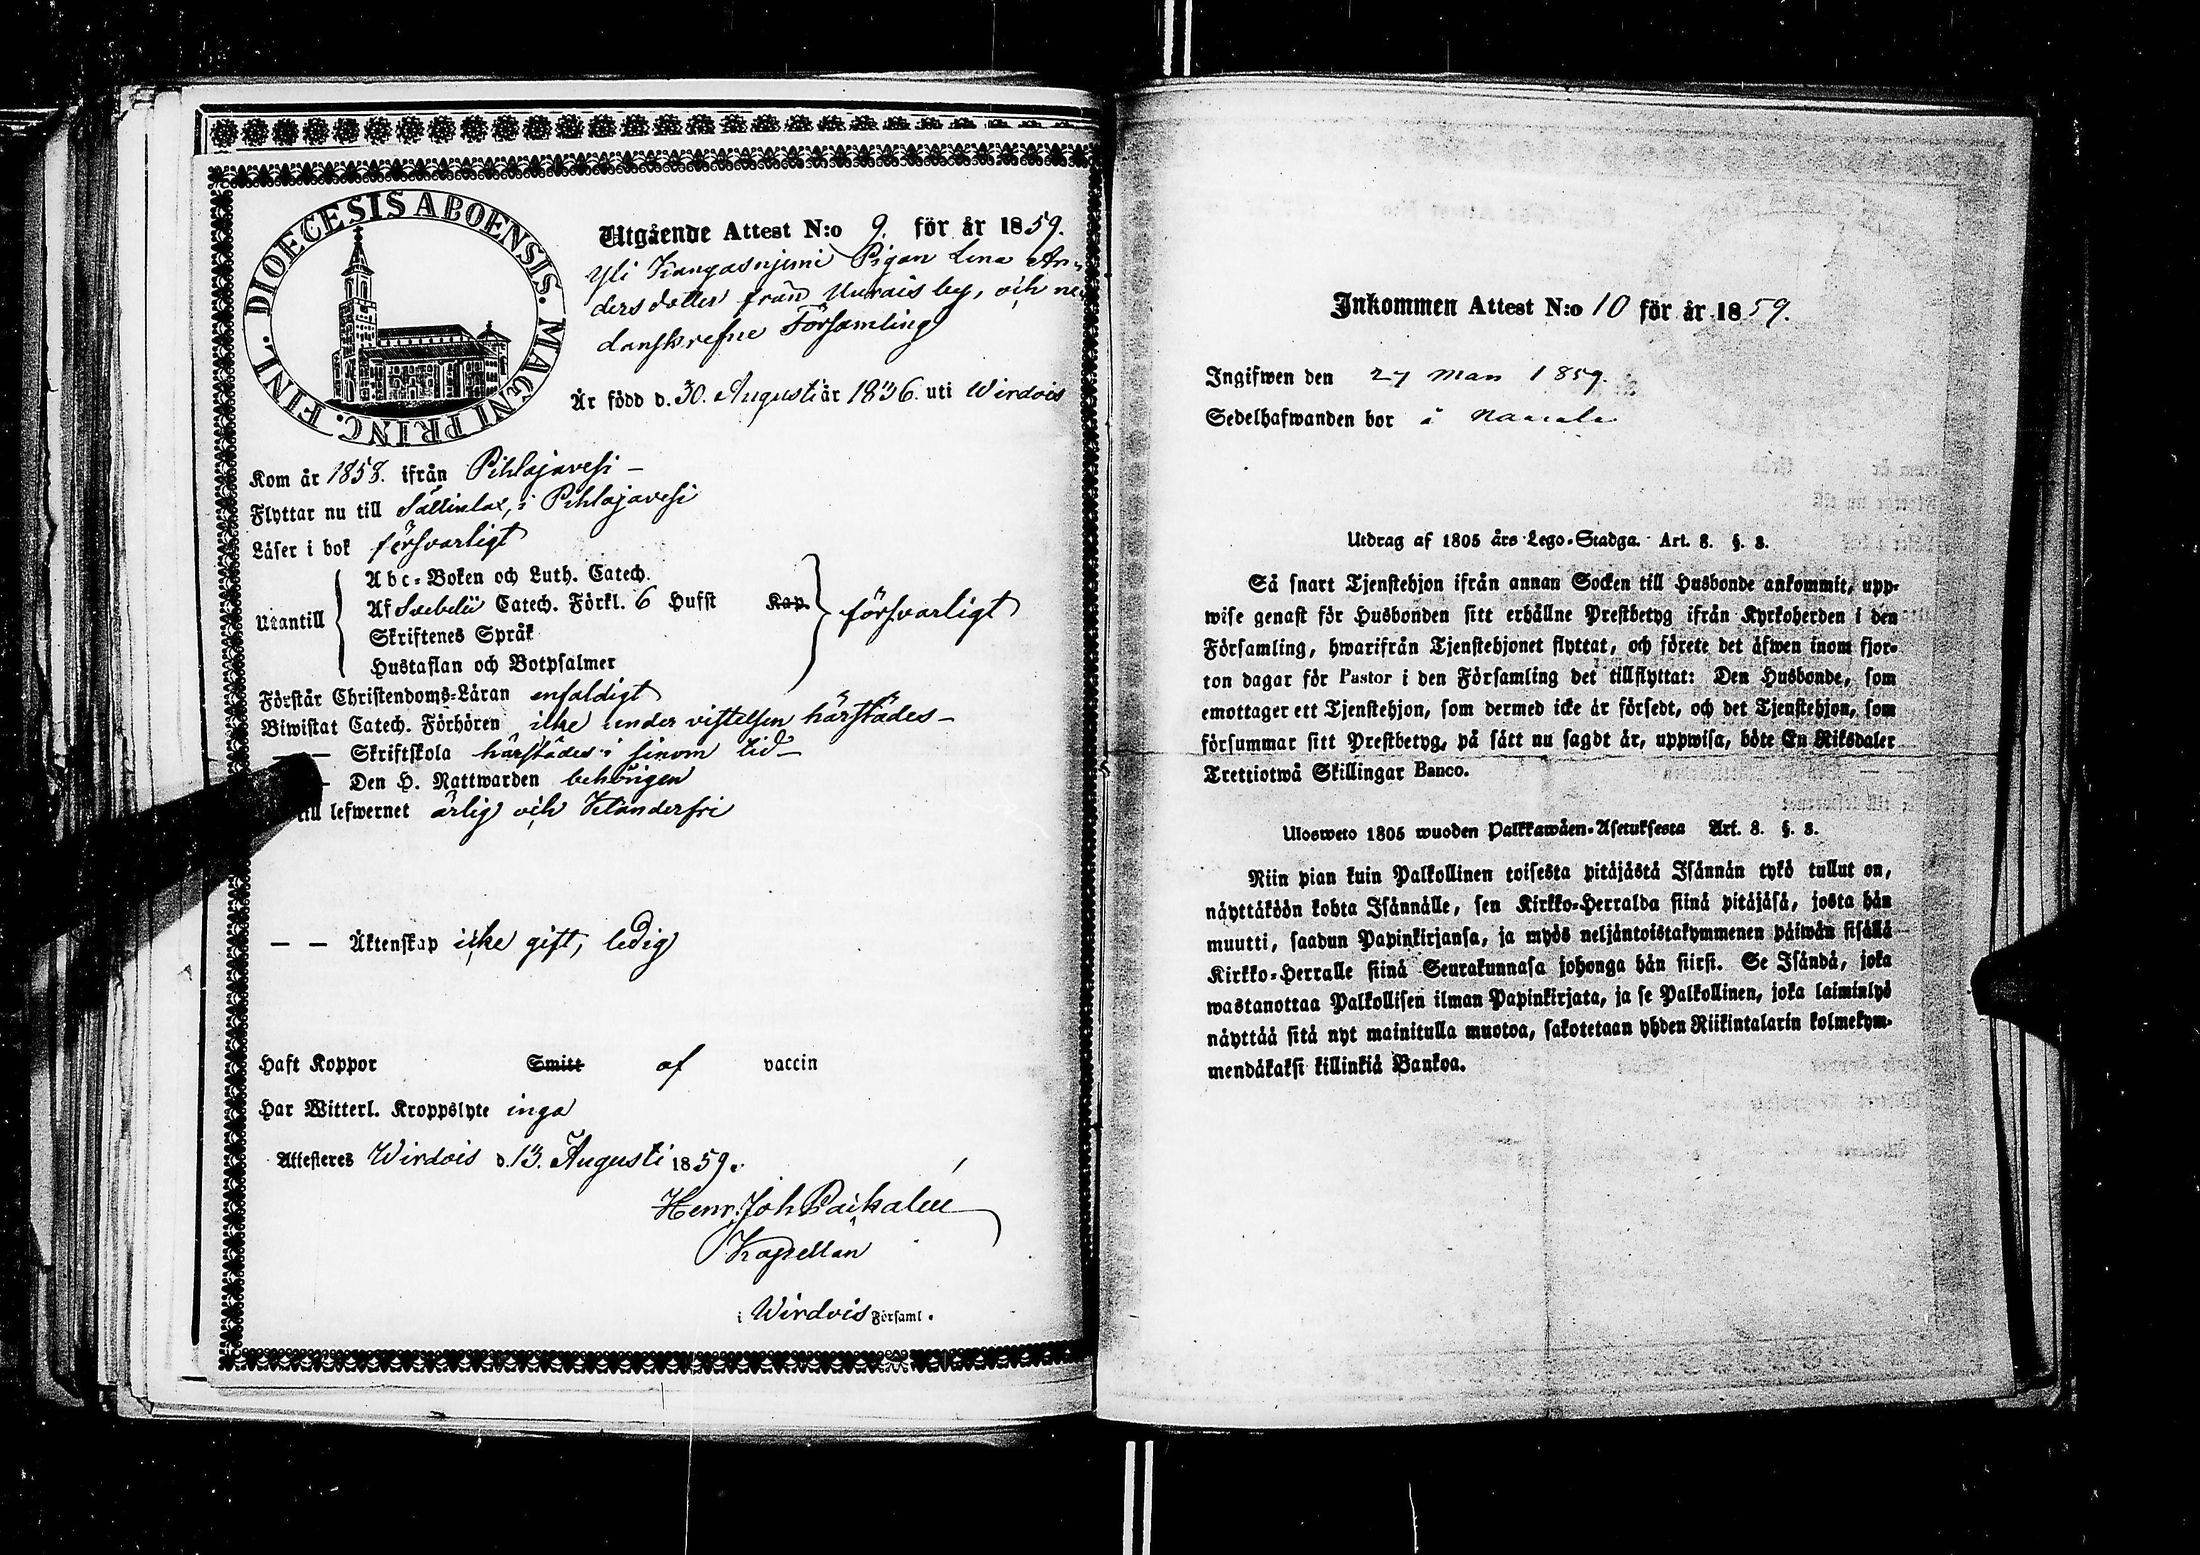 DIOECESIS ABOENSIS. MAGNI PRINC. FINL.
Utgående Attest N:o 9. för år 1859.
Yli Kangasnjemi Pigan Lena An-
dersdotter från Uurais by, och ne-
danskrefne Församling
Är född d. 30. Augusti år 1836. uti Wirdois
Kom år 1858. ifrån Pihlajavesi –
Flyttar nu till Sällinlax, i Pihlajavesi
Läser i bok försvarligt
Utantill
Abc-Boken och Luth. Catech.
Af Svebelii Catech. Förkl. 6 Hufst Kap. försvarligt
Skriftenes Språk
Hustaflan och Botpsalmer
Förstår Christendoms-Läran enfaldigt
Biwistat Catech. Förhören icke under vistelsen härstädes –
— Skriftskola härstädes i sinom tid –
— Den H. Nattwarden behörigen
till lefwernet ärlig och Klanderfri
— — Äktenskap icke gift, ledig
Haft Koppor Smitt af vaccin
Har Witterl. Kroppslyte inga
Attesteres Wirdois d. 13. Augusti 1859.
Henr. Joh
Kapellan
i Wirdois Församl.
Inkommen Attest N:o 10 för år 1859.
Ingifwen den 27 1859.
Sedelhafwanden bor i
Utdrag af 1805 års Lego-Stadga. Art. 8. §. 8.
Så snart Tjenstehjon ifrån annan Socken till Husbonde ankommit, upp-
wise genast för Husbonden sitt erhållne Prestbetyg ifrån Kyrkoherden i den
Församling, hwarifrån Tjenstehjonet flyttat, och förete det äfwen inom fjor-
ton dagar för Pastor i den Församling det tillflyttat: Den Husbonde, som
emottager ett Tjenstehjon, som dermed icke är försedt, och det Tjenstehjon, som
försummar sitt Prestbetyg, på sätt nu sagdt är, uppwisa, böte En Riksdaler
Trettiotwå Skillingar Banco.
Ulosweto 1805 wuoden Palkkawäen-Asetuksesta Art. 8. §. 8.
Niin pian kuin Palkollinen toisesta pitäjästä Isännän tykö tullut on,
näyttäköön kohta Isännälle, sen Kirkko-Herralda siinä pitäjäsä, josta hän
muutti, saadun Papinkirjansa, ja myös neljäntoistakymmenen päiwän sisällä
Kirkko-Herralle siinä Seurakunnasa johonga hän siirsi. Se Isändä, joka
wastanottaa Palkollisen ilman Papinkirjata, ja se Palkollinen, joka laiminlyö
näyttää sitä nyt mainitulla muotoa, sakotetaan yhden Riikintalarin kolmekym-
mendäkaksi killinkiä Bankoa.